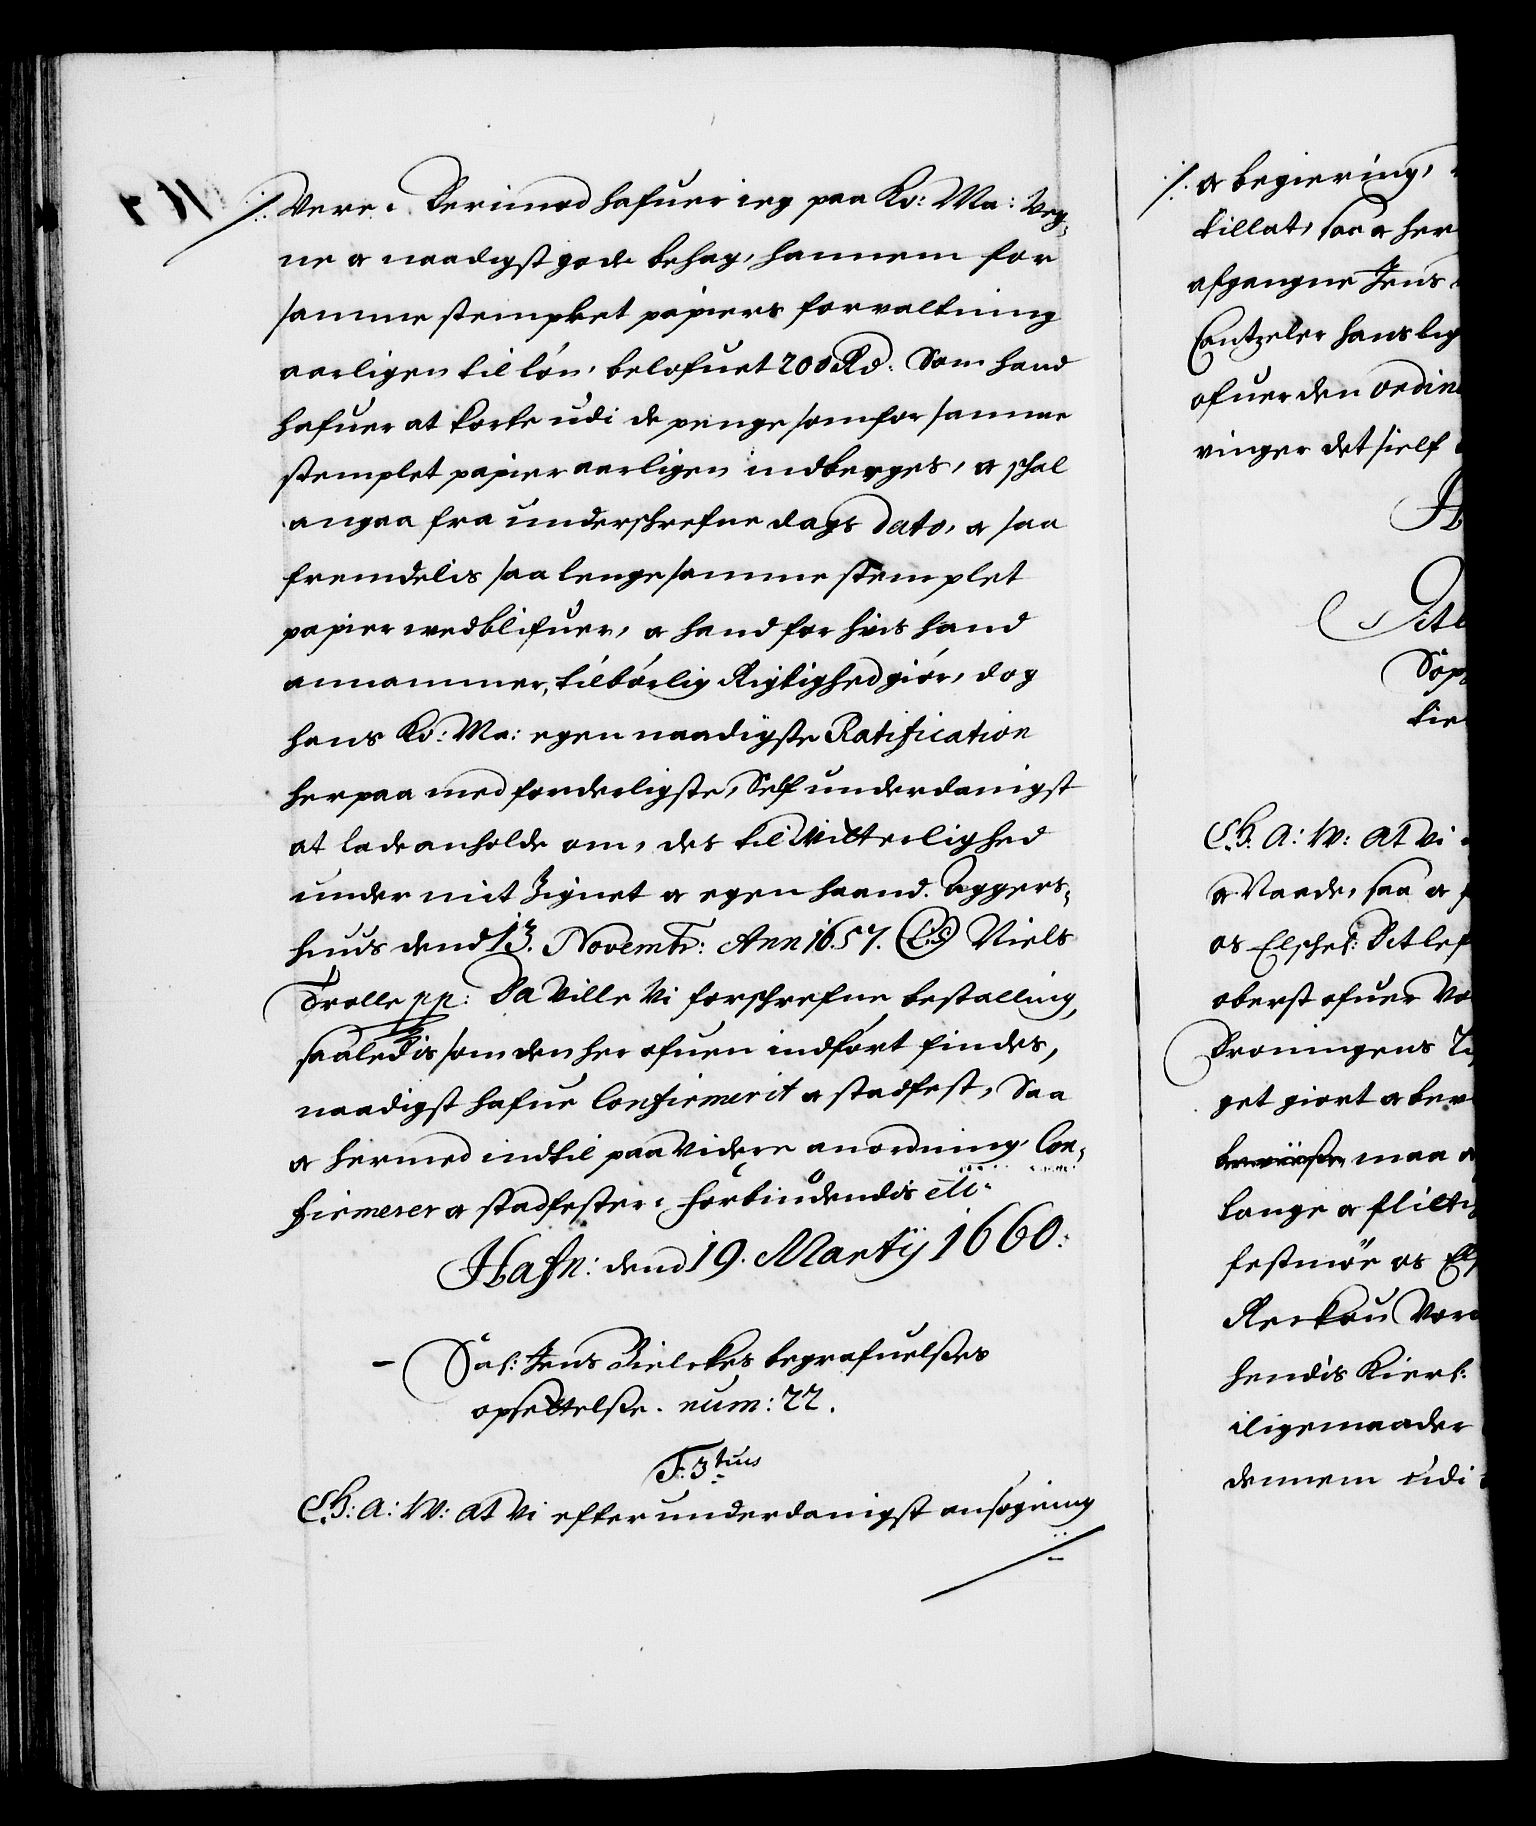 ./. Vere. Derimod hafuer ieg paa Ko: Ma: Veg¸
ne og naadigst gode behag, hannem for
samme stemplet papiers forvaltning
aarligen til lön, belofuet 200 Rd. Som hand
hafuer at korte udi de penge som for samme
stemplet papier aarligen indberges, og schal
angaa fra underschrefne dags Dato, og saa
fremdelis saa lenge samme stemplet
papier vedblifuer, og hand for hvis hand
annammer, tilbörlig Rigtighed giör, dog
hans Ko: Ma: egen naadigste Ratification
herpaa med forderligste, Self underdanigst
at lade anholde om, des til Vitterlighed
under mit Zignet og egen haand. Aggers¸
huus dend 13. Novembr: Ann 1657. (L.S) Niels
Trolle pp: Da Ville Vi forschrefne bestalling,
saaledis som den her ofuen indfört findes,
naadigst hafue Confirmerit og stadfest, Saa
og hermed indtil paa Videre anordning Con¸
firmerer og stadfester. Forbiudendis etc:
Hafn: dend 19. Martij 1660:
Sal: Jens Bielckes begrafuelses
opsettelse. num: 22.
F. 3tius
C.3: A: W: At Vi efter underdanigst ansögning
./. og begiering,
tillat, saa og her
afgangne Jens
Cantzeler hans lig
ofuer den ordin
ringer det sielf
H
Ditl
Sop
tie
C.3. A: W: At Vi
og Naade, saa og
os Elschel: Ditlef
oberst ofuer Vo
Droningens
get giort og ber
maa
lange og flitti
festmöe os Els
Rerkou Vor
hendis Kierl:
iligemaader
dennem udi